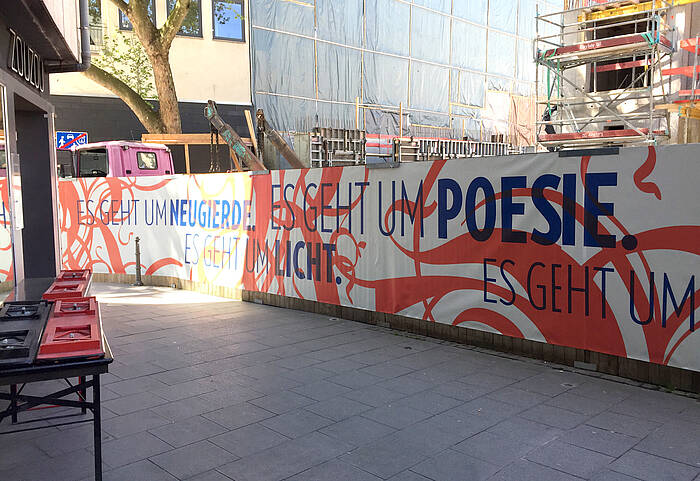 ES GEHT UM NEUGIERDE.
ES GEHT UM LICHT.
ES GEHT UM POESIE.
ES GEHT UM